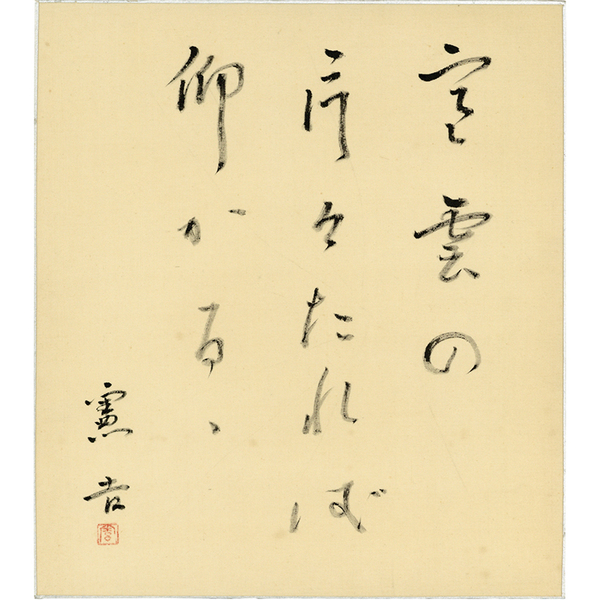 寒雲の
片々たれば
仰がるゝ
憲吉